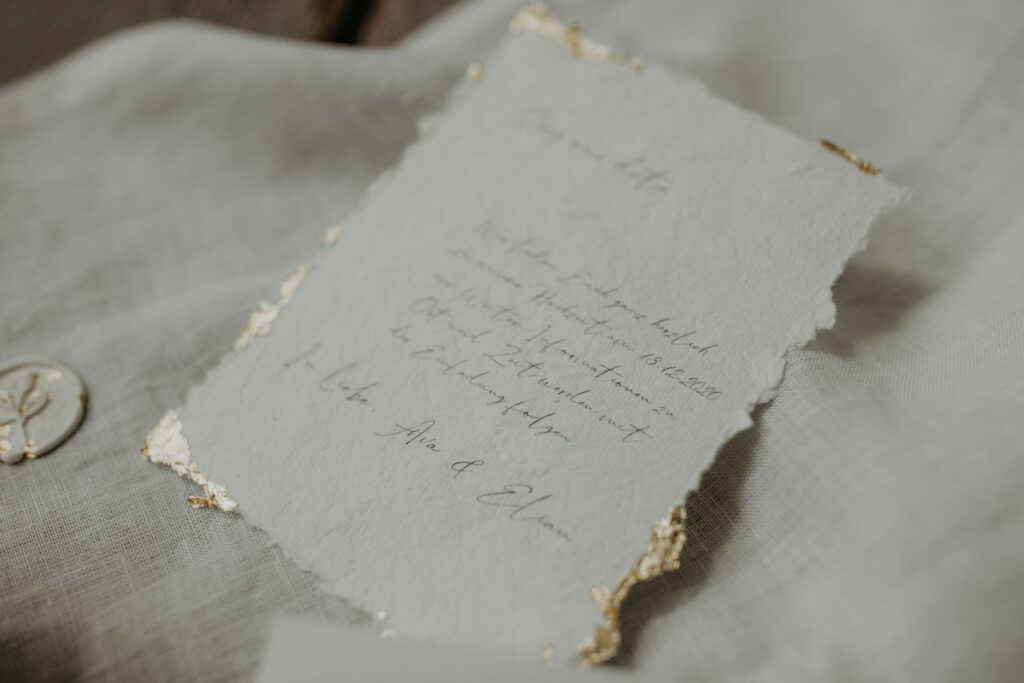 Save our date
Wir laden Euch ganz herzlich
zu unserer Hochzeit am 19.12.2020
Weitere Informationen zu
Ort und Zeit werden mit
der Einladung folgen.
In Liebe,
Ava & Elian